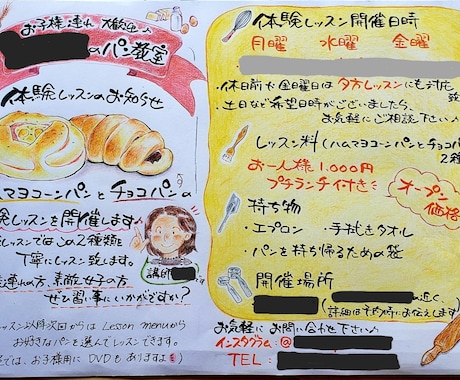 お子様連れ 大歓迎♪
のパン教室
体験レッスンのお知らせ
ハムマヨコーンパンとチョコパンの
験レッスンを開催します
レッスンではこの2種類を
丁寧にレッスン致します。
講師
連れの方、素敵女子の方
ぜひ習い事にいかがですか?
レッスン以降次回からは Lesson menuから
お好きなパンを選んでレッスンできます。
室では、お子様用にDVDもあります
体験レッスン開催日時
月曜 水曜 金曜
・休日前や金曜日は夕方レッスンにも対応
・土日など希望日時がございましたら、
お気軽にご相談下さい♪
レッスン料(ハムマヨコーンパンとチョコパ
2種
お一人様 1,000円
プチランチ付き
オープン
価格
持ち物
・エプロン ・手拭きタオル
・パンを持ち帰るための袋
開催場所
近く
(詳細は予約時にお伝えします)
お気軽にお問い合わせ下さい♪
インスタグラム:@
TEL: